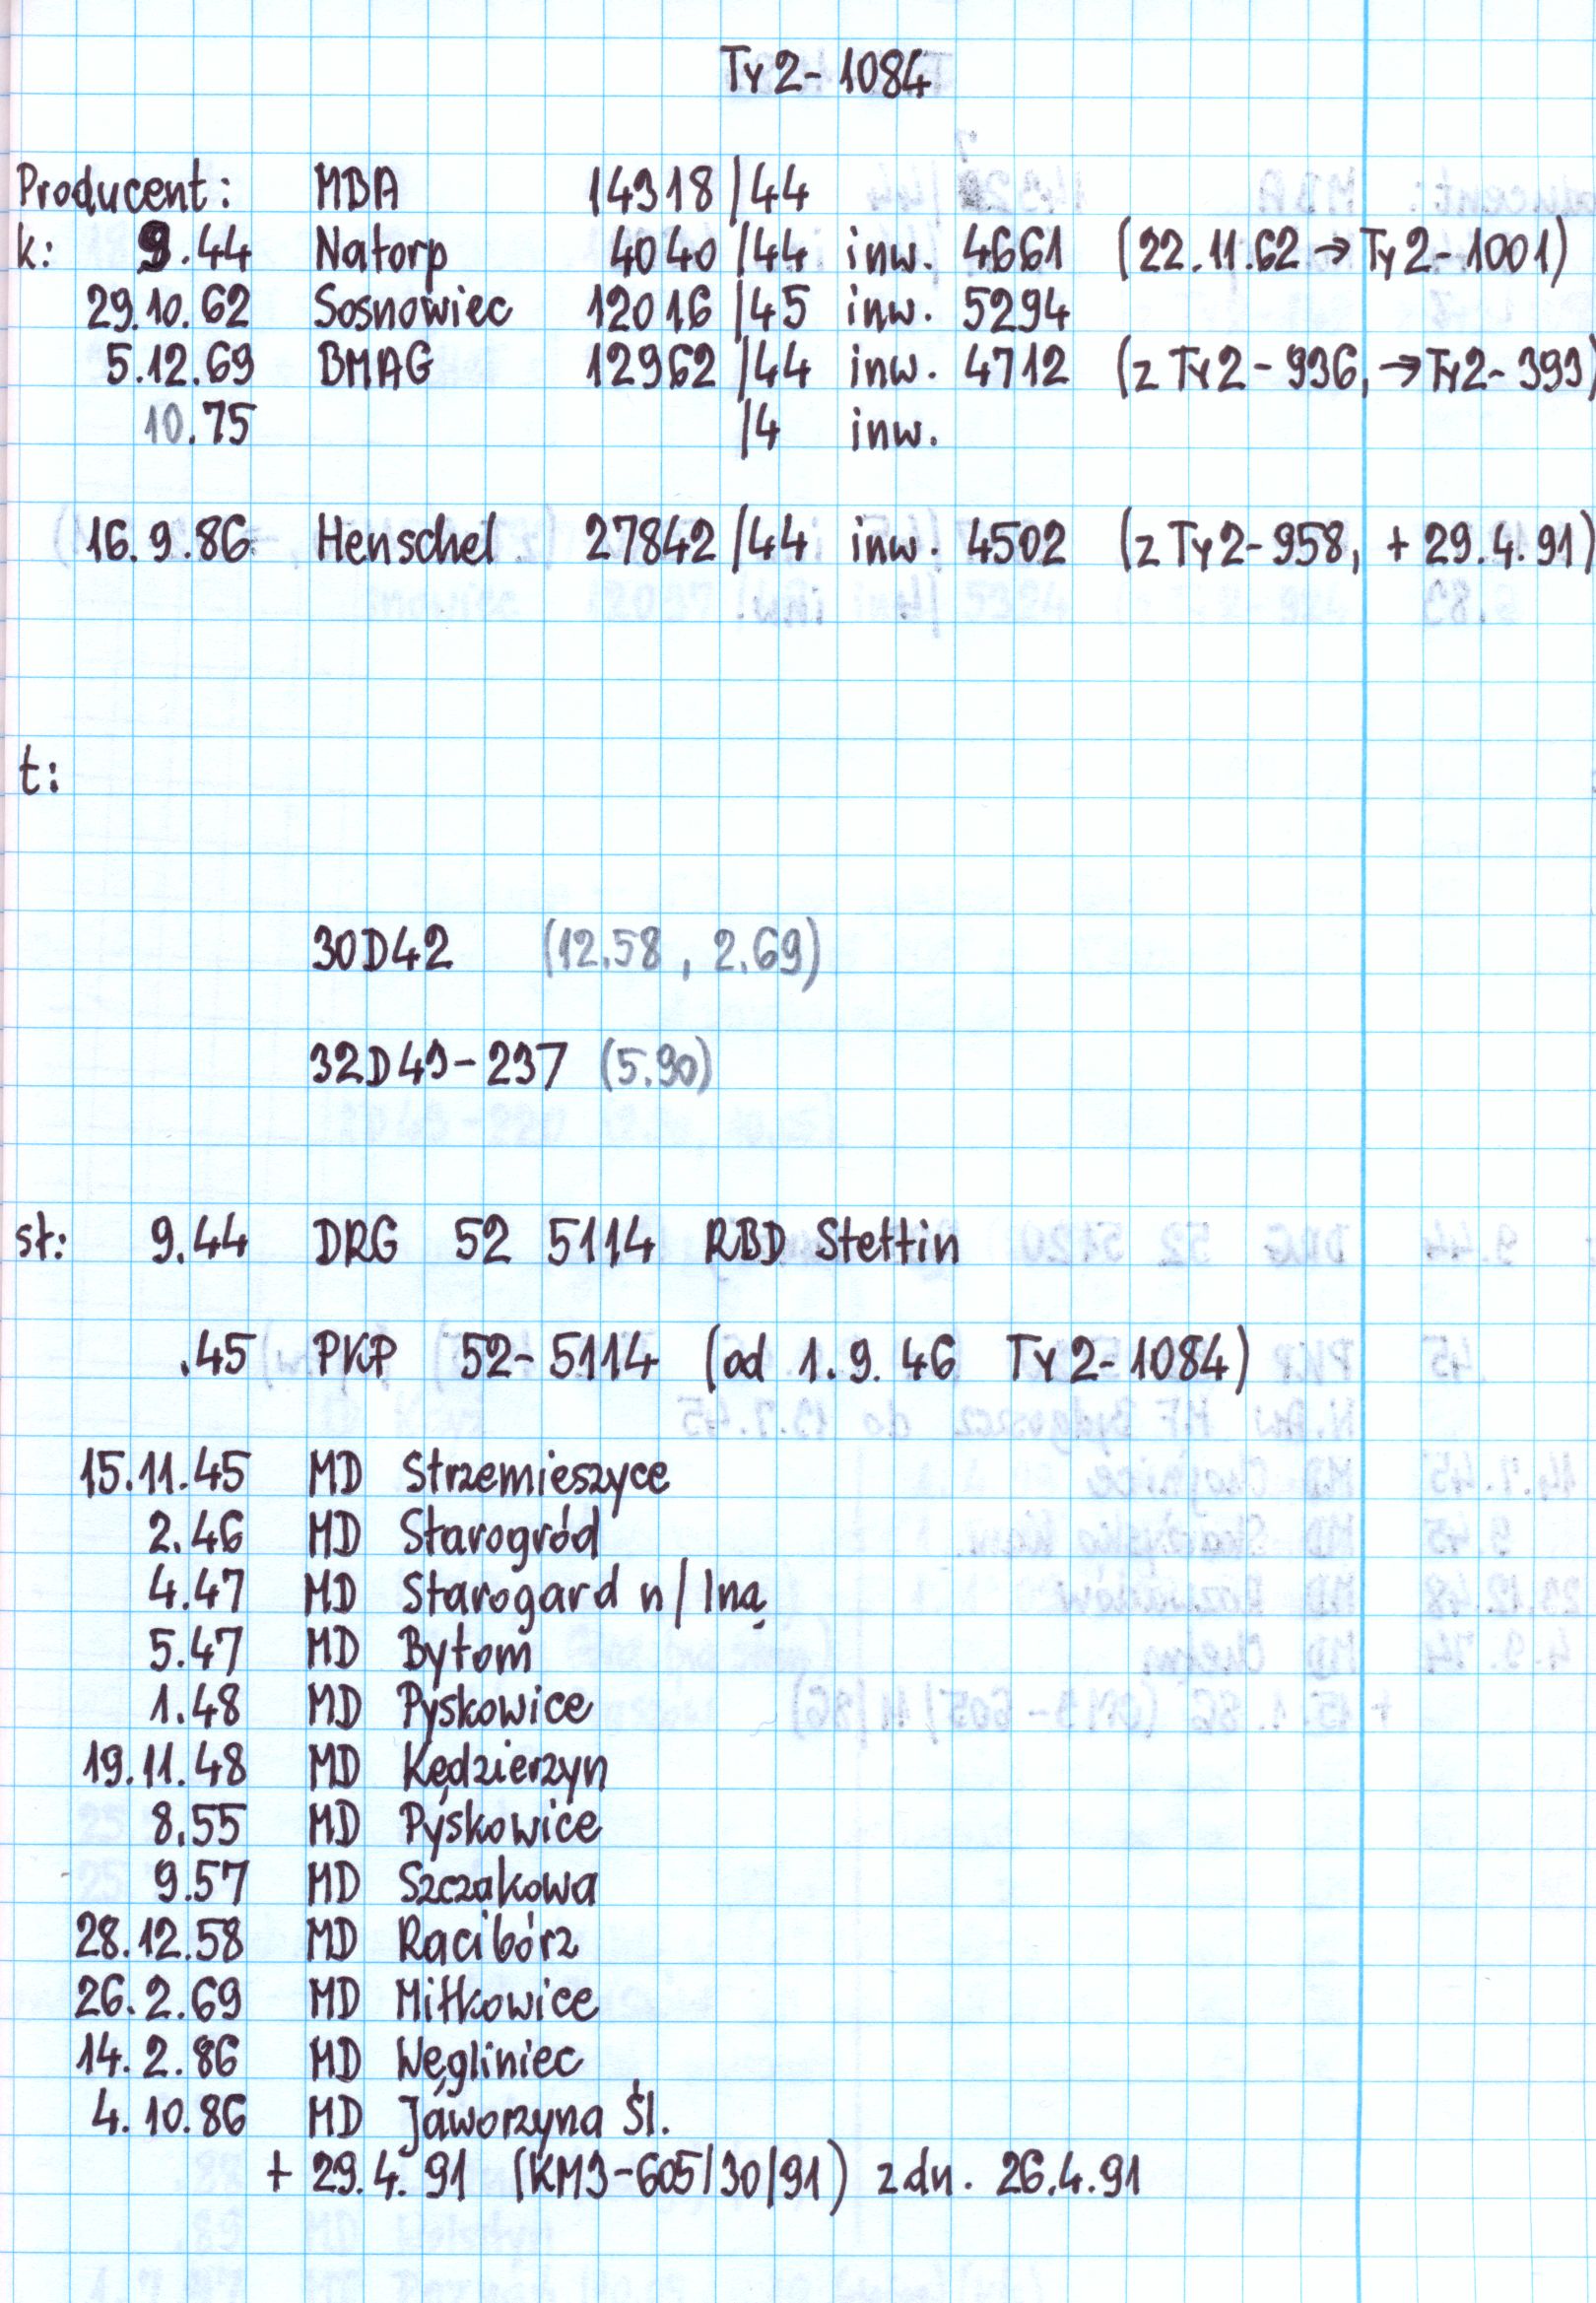 Ty2-1084
Producent: MBA 14318/44
k: 9.44 Natorp 4040/44 inw. 4661 (22.11.62 → Ty2-1001)
29.10.62 Sosnowiec 12016/45 inw. 5294
5.12.69 BMAG 12962/44 inw. 4712 (z Ty2-936, → Ty2-393)
10.75 /4 inw.
16.9.86 Henschel 27842/44 inw. 4502 (z Ty2-958, + 29.4.91)
t:
30D42 (12.58, 2.69)
32D43-237 (5.90)
st: 9.44 DRG 52 5114 RBD Stettin
.45 PKP 52-5114 (od 1.9.46 Ty2-1084)
15.11.45 MD Strzemieszyce
2.46 MD Starogród
4.47 MD Starogard n/Iną
5.47 MD Bytom
1.48 MD Pyskowice
19.11.48 MD Kędzierzyn
8.55 MD Pyskowice
9.57 MD Szczakowa
28.12.58 MD Racibórz
26.2.69 MD Miłkowice
14.2.86 MD Węgliniec
4.10.86 MD Jaworzyna Śl.
+ 29.4.91 (KM3-605/30/91) z dn. 26.4.91